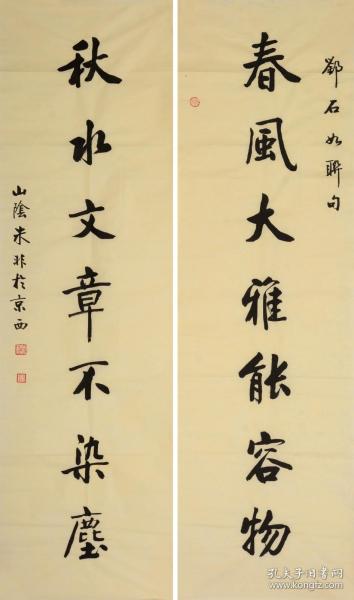 鄧石如聯句
春風大雅能容物
秋水文章不染塵
山陰米非於京西
孔夫子旧书网